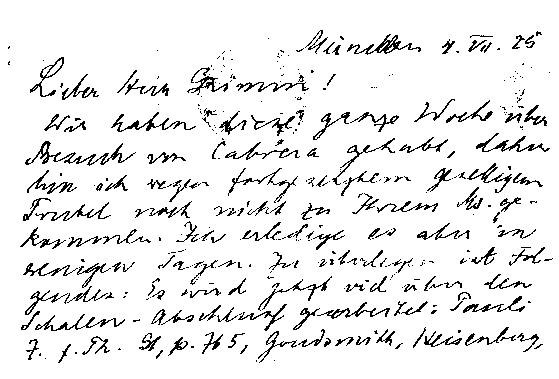 München 4. VII. 25
Lieber Herr Grimm!
Wir haben diese ganze Woche über
Besuch von Cabrera gehabt, daher
bin ich wegen fortgesetztem geselligem
Trubel noch nicht zu Ihrem Ms. ge-
kommen. Ich erledige es aber in
wenigen Tagen. Zu überlegen ist Fol-
gendes: Es wird jetzt viel über den
Schalen-Abschluss gearbeitet: Pauli
Z. f. Ph. 31, p. 765, Goudsmith, Heisenberg,